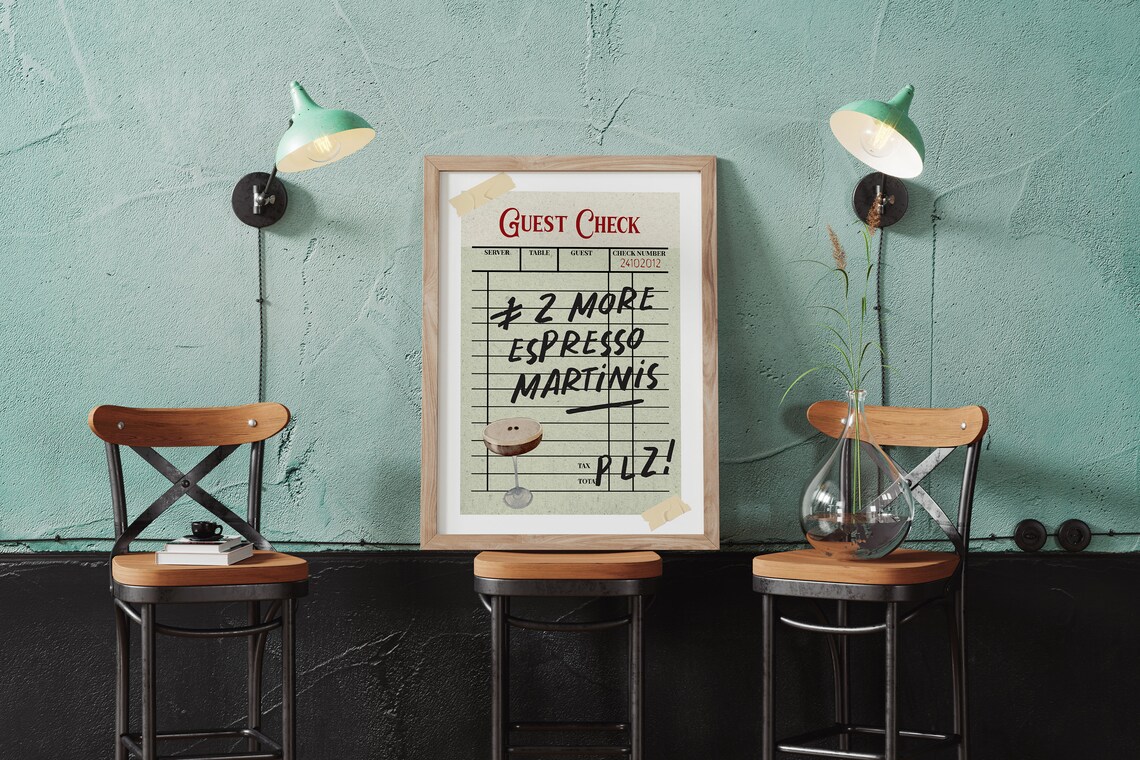 GUEST CHECK
SERVER TABLE GUEST CHECK NUMBER
24102012
≠ 2 MORE
ESPRESSO
MARTiNiS
PLZ!
TAX
TOTA